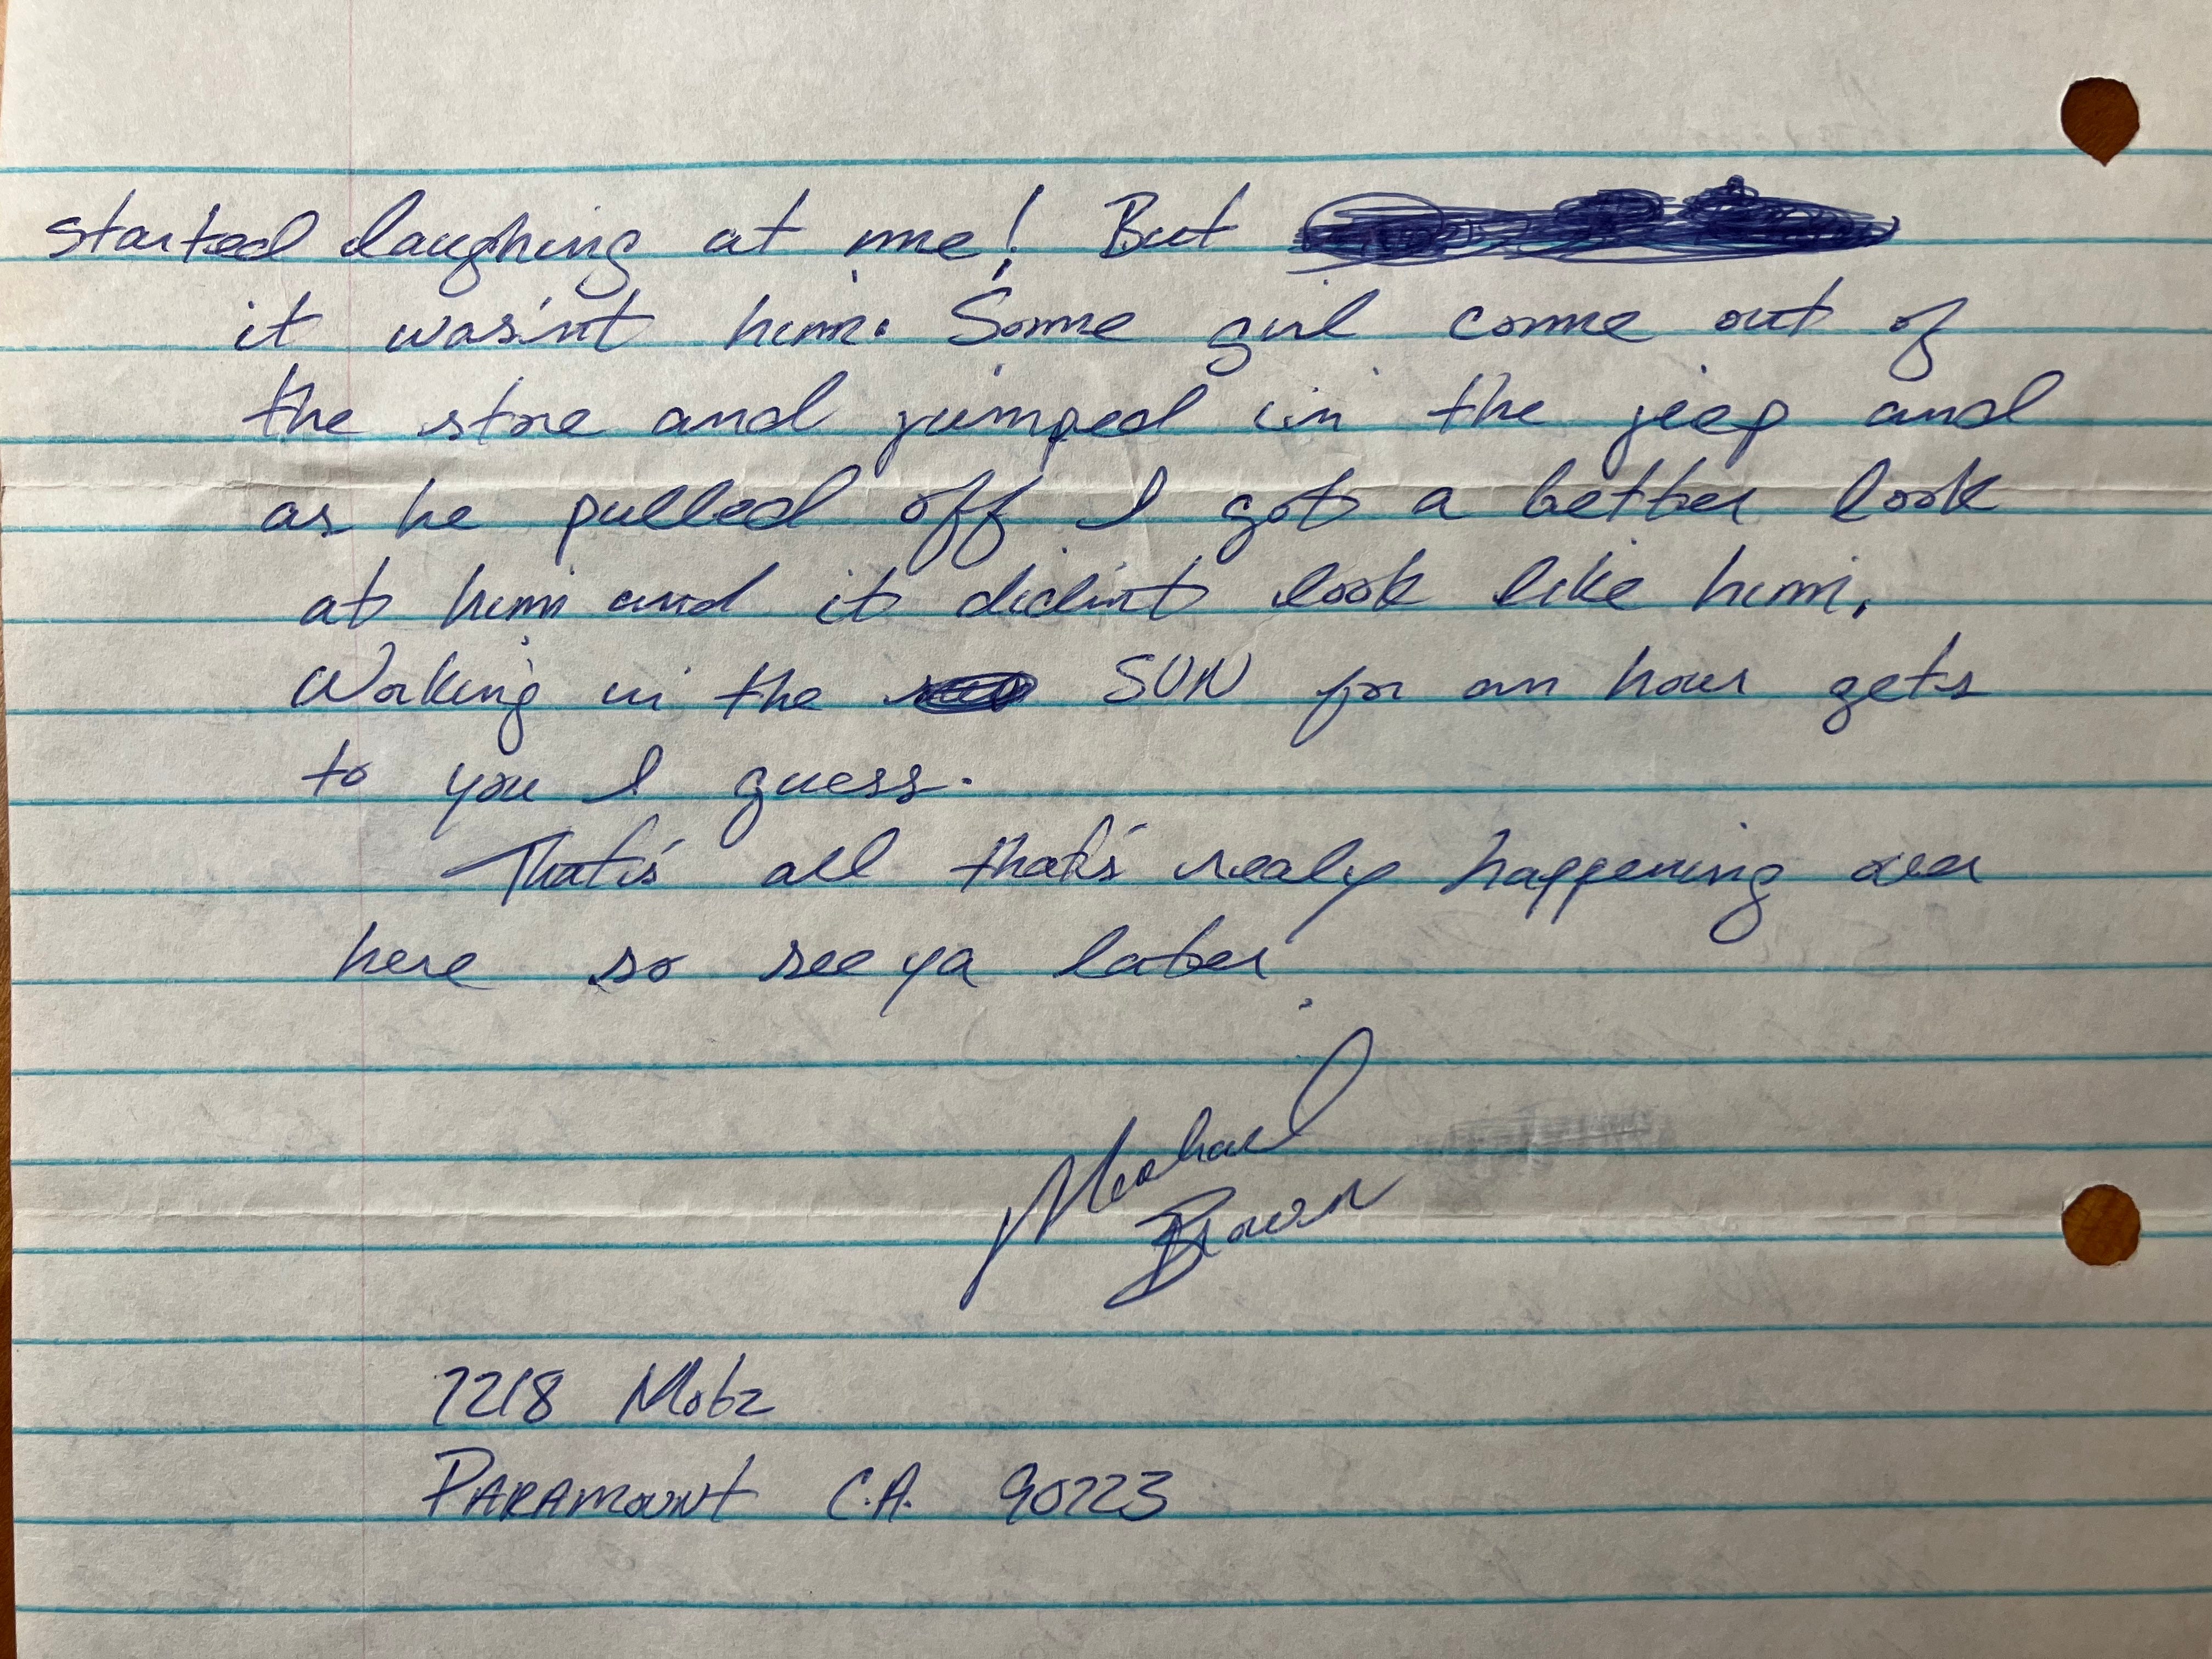 started laughing at me! But
it was'nt him. Some girl come out of
the store and jumped in the jeep and
as he pulled off I got a better look
at him and it did'nt look like him.
Working in the SUN for an hour gets
to you I guess.
That's all that's realy happening over
here so see ya later.
Michael
Brown
7218 Motz
PARAMOUNT C.A. 90723